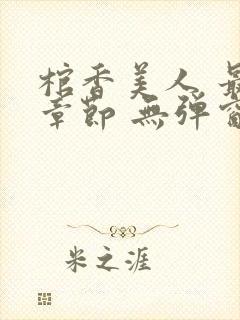 棺香美人 最
章節 無彈窗
米之涯